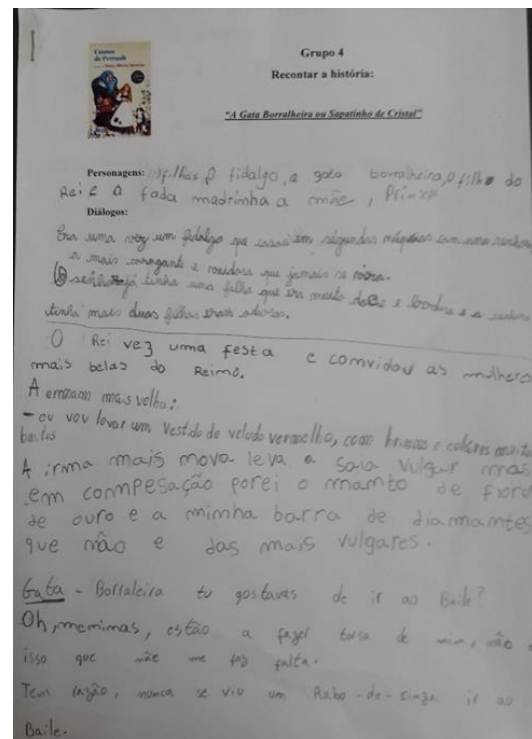 Contos
de Perrault
Grupo 4
Recontar a história:
"A Gata Borralheira ou Sapatinho de Cristal"
Personagens: filhas O fidalgo, a gata borralheira, o filho do
Rei e a fada madrinha a mãe, Prínxp
Diálogos:
Era uma vez um fidalgo que casou em segundas núpcias com uma senhora,
a mais arrogante e vaidosa que jamais se vira.
O senhor já tinha uma filha que era muito doce e bondosa e a senhora
tinha mais duas filhas eram odiosas.
O Rei vez uma festa e comvidou as mulheres
mais belas do Reimo.
A ermam mais velha:
- eu vou levar um vestido de veludo vermelho, com brincos e colares muito
bonitos
A irma mais mova leva a saia vulgar mas
em commpesação porei o mamto de
de ouro e a mimha barra de diamamtes
que não e das mais vulgares.
Gata - Borraleira tu gostavas de ir ao Baile?
Oh, memimas, estão a fazer torsa de mim, não é
isso que me faz falta.
Tens razão, numca se viu um Rabo-de-simza ir ao
Baile.